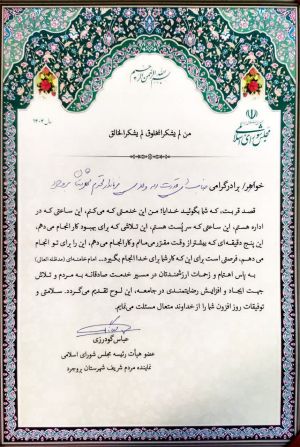 بسم الله الرحمن الرحیم
سال ۱۴۰۲
مجلس شورای اسلامی
من لم یشکر المخلوق لم یشکر الخالق
خواهر/ برادر گرامی
قصد قربت، که شما بگوئید خدایا! من این خدمتی که می‌کنم، این ساعتی که در
اداره هستم، این ساعتی که سر پُست هستم، این تلاشی که برای بهبود کار انجام می‌دهم،
این پنج دقیقه‌ای که بیشتر از وقت مقرر می‌مانم و کار انجام می‌دهم، این را برای تو انجام
می‌دهم، فرصتی است برای این که کار شما برای خدا انجام بگیرد... امام خامنه‌ای (مدظله العالی)
به پاس اهتمام و زحمات ارزشمندتان در مسیر خدمت صادقانه به مردم و تلاش
جهت ایجاد و افزایش رضایتمندی در جامعه، این لوح تقدیم می‌گردد. سلامتی و
توفیقات روز افزون شما را از خداوند متعال مسئلت می‌نمایم.
عباس گودرزی
عضو هیأت رئیسه مجلس شورای اسلامی
نماینده مردم شریف شهرستان بروجرد